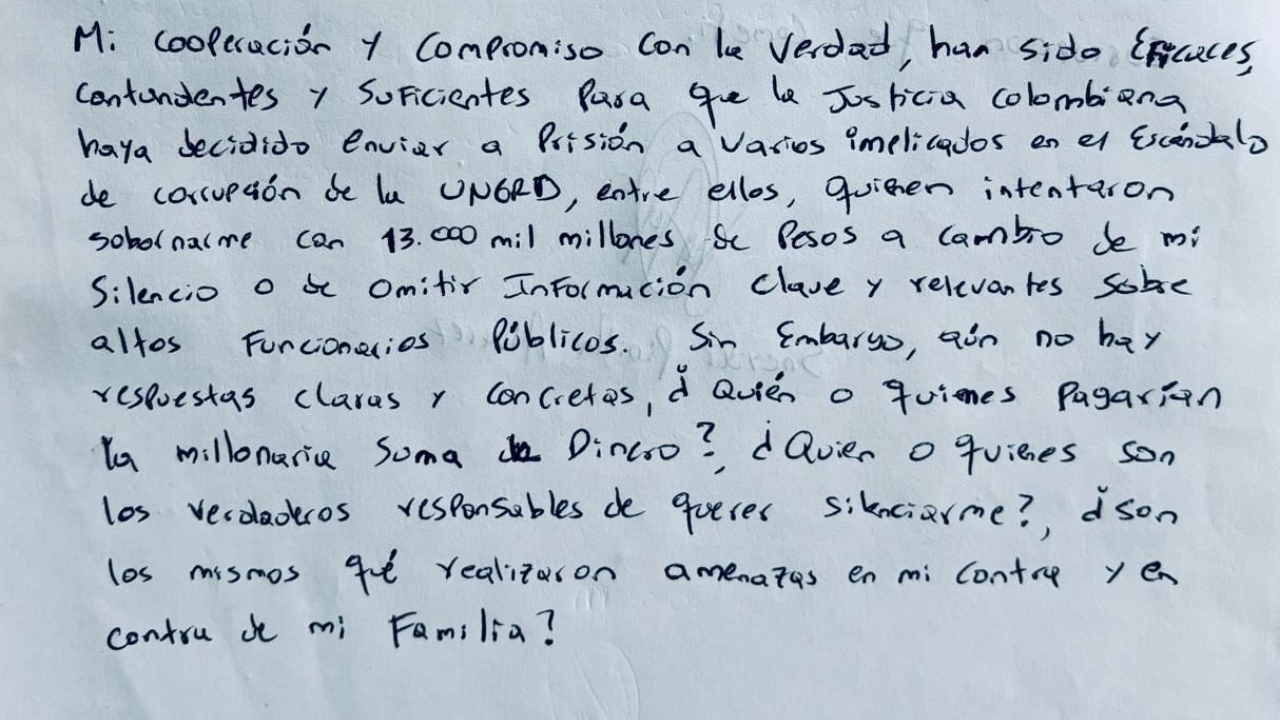 Mi cooperación y compromiso con la verdad, han sido Eficaces,
contundentes y suficientes para que la Justicia colombiana
haya decidido enviar a Prisión a varios implicados en el Escándalo
de corrupción de la UNGRD, entre ellos, quienen intentaron
sobornarme con 13.000 mil millones de Pesos a cambio de mi
Silencio o de omitir Información clave y relevantes sobre
altos Funcionarios Públicos. Sin Embargo, aún no hay
respuestas claras y concretas, ¿Quién o quienes Pagarían
la millonaria suma de Dinero?, ¿Quien o quienes son
los verdaderos responsables de querer silenciarme?, ¿son
los mismos qué realizaron amenazas en mi contra y en
contra de mi Familia?